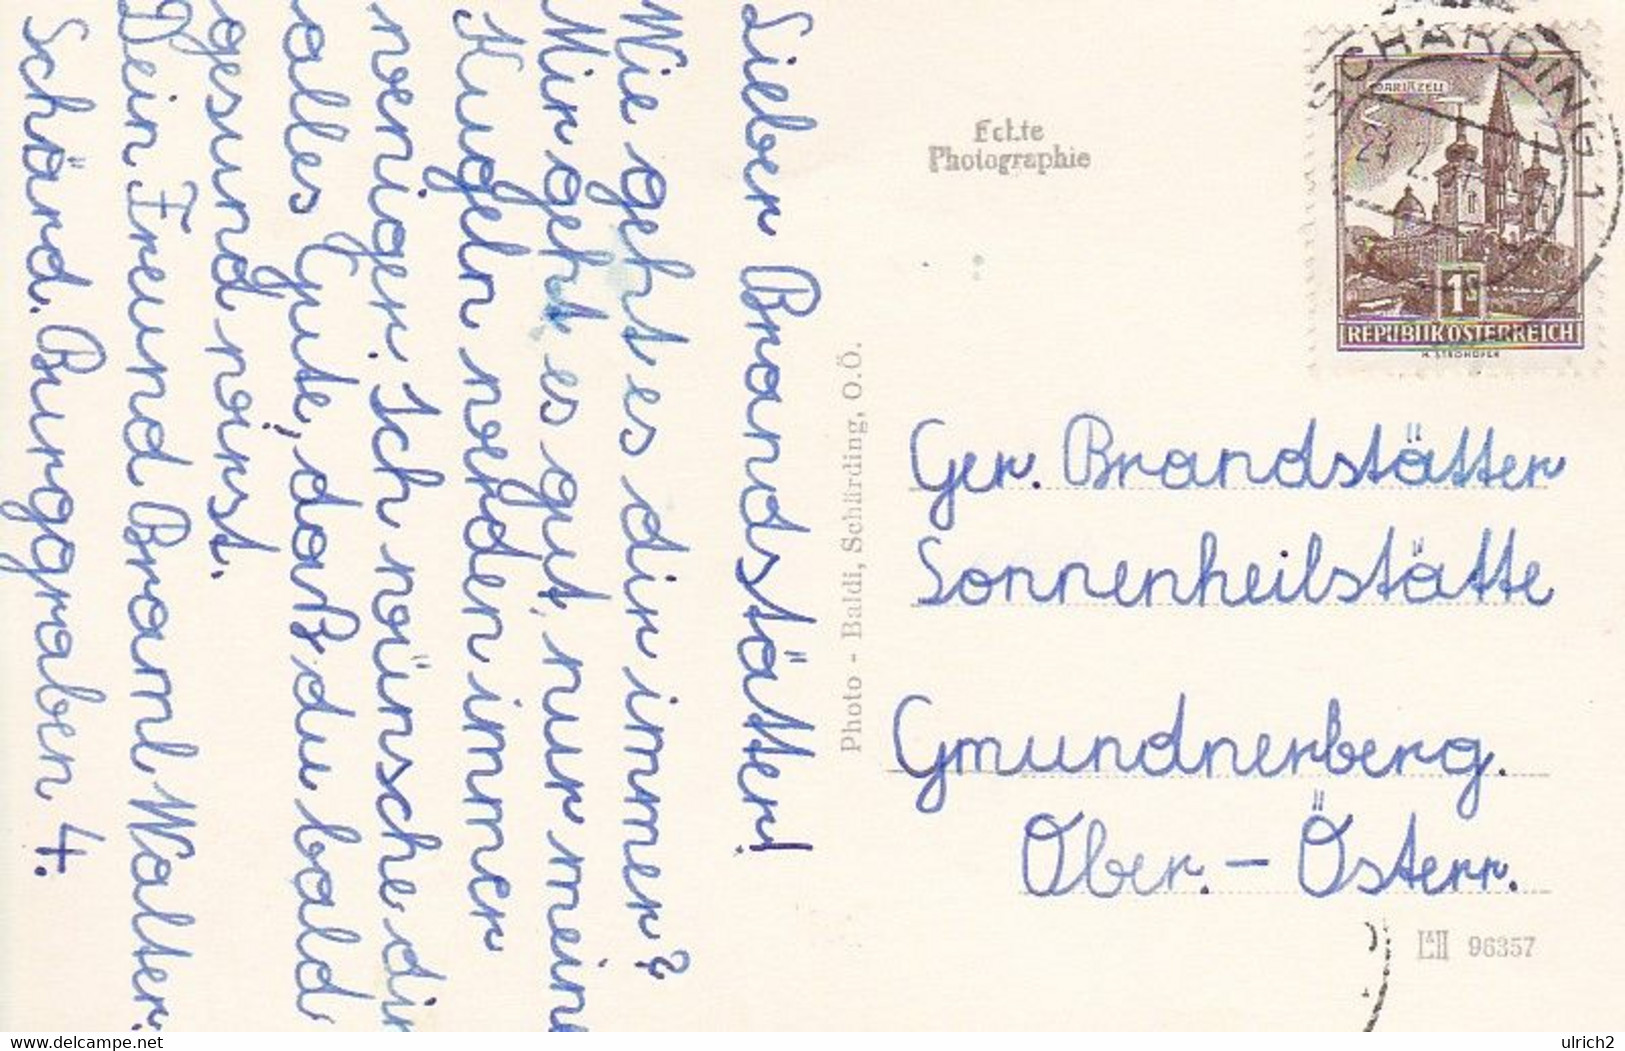 Lieber Brandstätter!
Wie geht es dir immer?
Mir geht es gut, nur meine
Kugeln werden immer
weniger. Ich wünsche dir
alles Gute, daß du bald
gesund wirst.
Dein Freund Braml Walter.
Schärd. Burggraben 4.
Photo - Baldi, Schärding, O.Ö.
Echte
Photographie
SCHÄRDING 1
MARIAZELL
1S
REPUBLIK ÖSTERREICH
H. STROHOFER
Ger. Brandstätter
Sonnenheilstätte
Gmundnerberg.
Ober.- Österr.
96357
delcampe.net
ulrich2